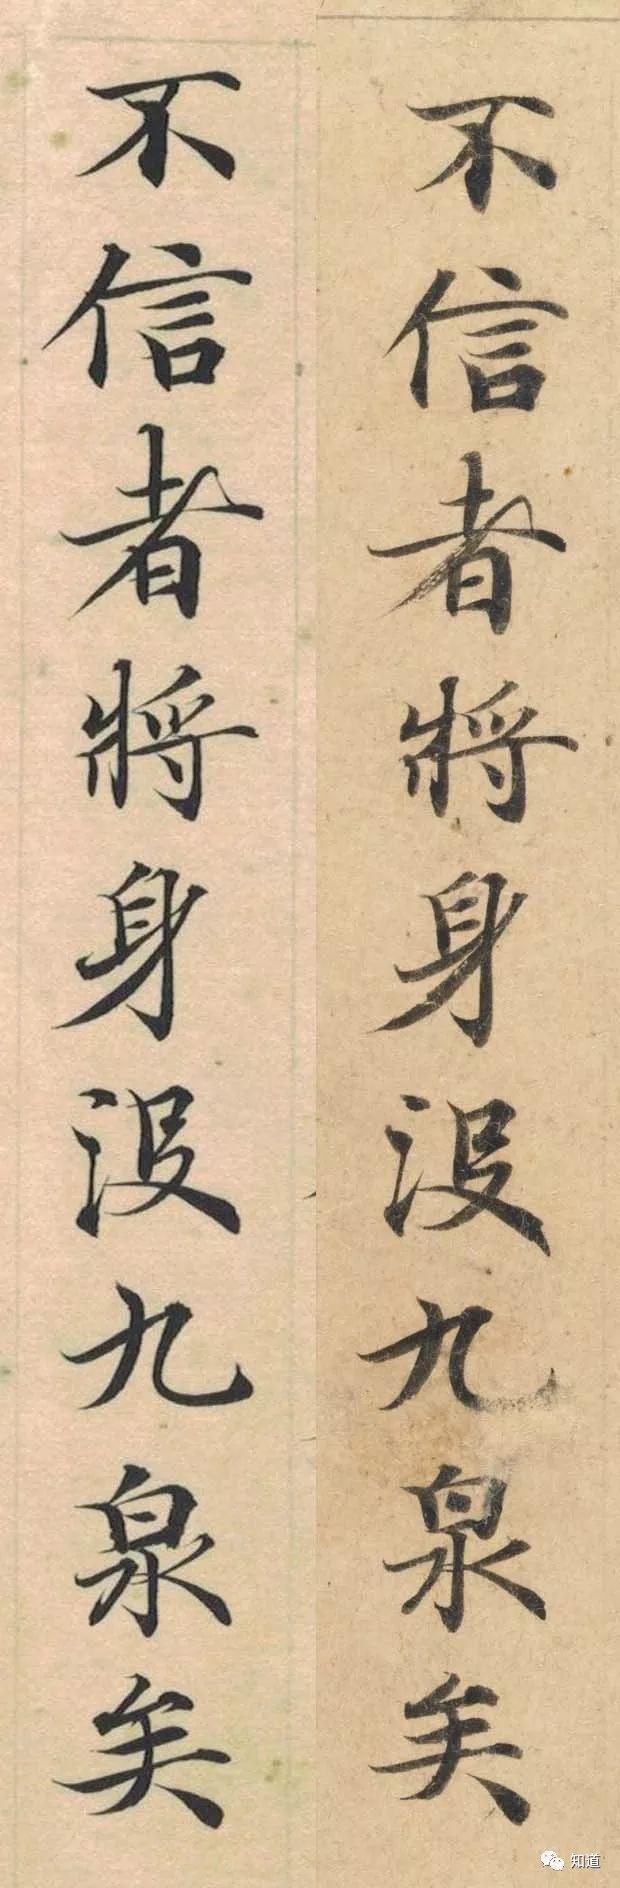 不信者將身没九泉矣
不信者將身没九泉矣
知道